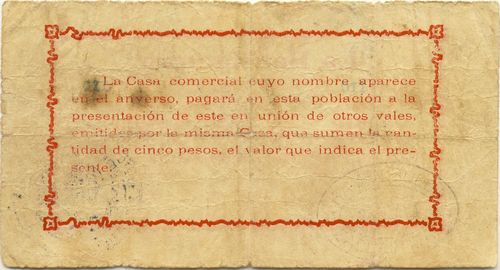 La Casa comercial cuyo nombre aparece
en el anverso, pagará en esta población a la
presentación de este en unión de otros vales,
emitidos por la misma Casa, que sumen la can-
tidad de cinco pesos, el valor que indica el pre-
sente.